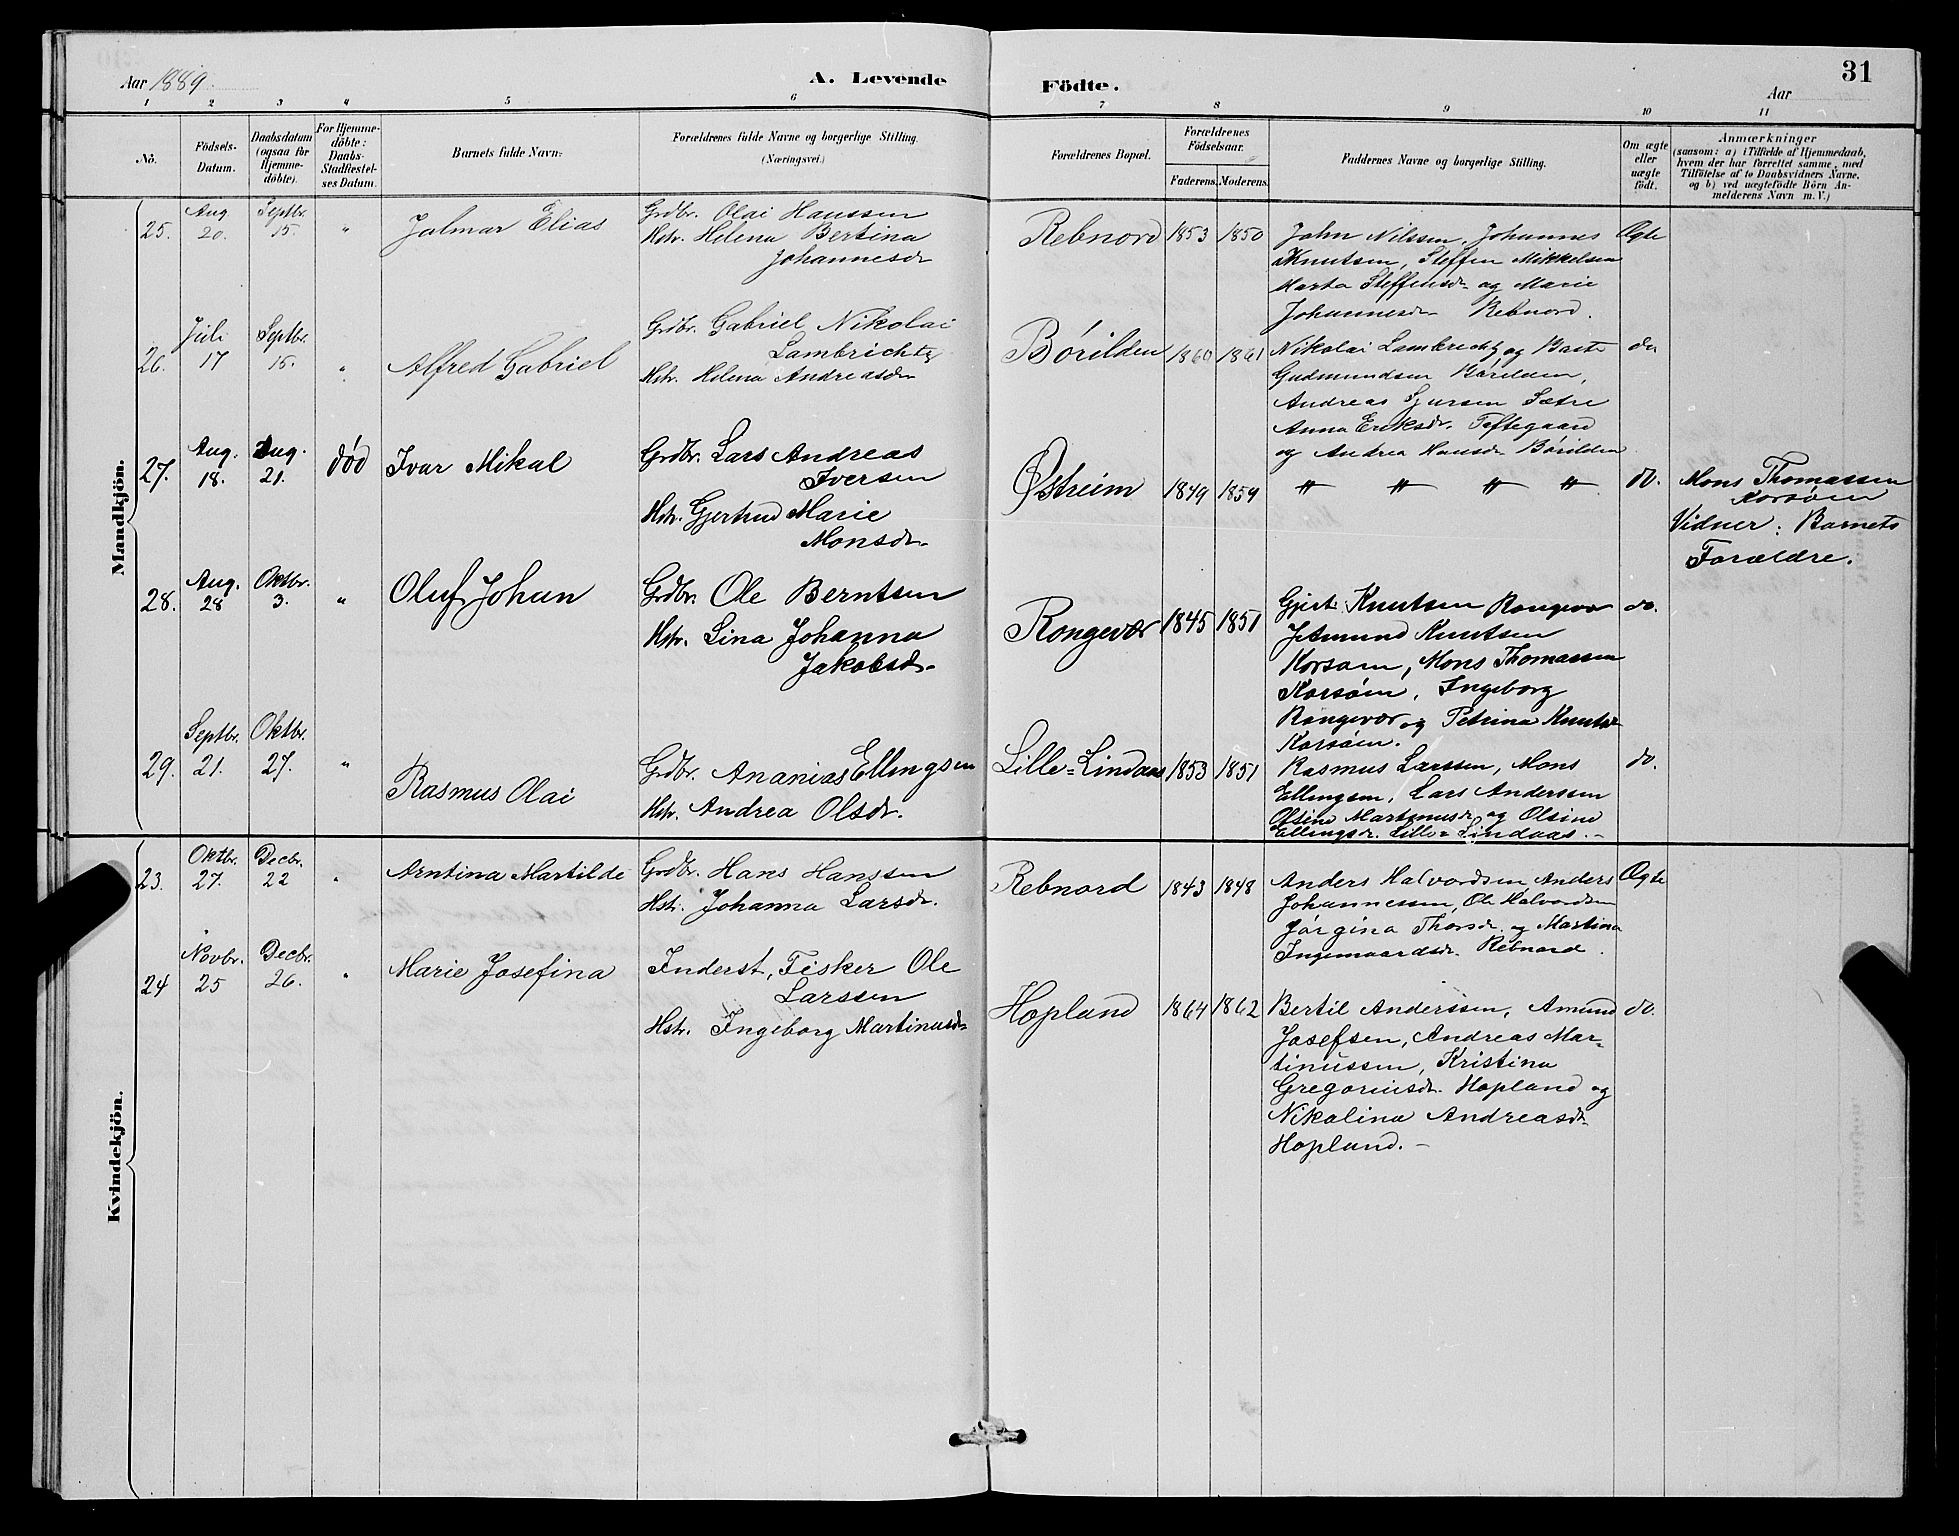 Aar 1889.
A. Levende
Födte.
31
Aar
1 2 3 4 5 6 7 8 9 10 11
No.
Födsels-
Datum.
Daabsdatum
(ogsaa for
Hjemme-
döbte).
For Hjemme-
döbte:
Daabs-
Stadfæstel-
ses Datum.
Barnets fulde Navn.
Forældrenes fulde Navne og borgerlige Stilling.
(Næringsvei.)
Forældrenes Bopæl.
Forældrenes
Födselsaar.
Faderens. Moderens.
Faddernes Navne og borgerlige Stilling.
Om ægte
eller
uægte
født.
Anmærkninger
(saasom: a) i Tilfælde af Hjemmedaab,
hvem der har forrettet samme, med
Tilföielse af to Daabsvidners Navne,
og b) ved uægtefödte Börn An-
melderens Navn m. V.)
Mandkjön.
25.
Aug
20.
Septbr.
15.
"
Jalmar Elias
Grdbr. Olai Hanssen
Hstr. Helena Bertina
Johannesdr
Rebnord
1853
1850
John Nilssen, Johannes
Knutsen, Steffen Mikkelsen
Marta Steffensdr og Marie
Johannesdr Rebnord.
Ægte
26.
Juli
17
Septbr.
15.
"
Alfred Gabriel
Grdbr. Gabriel Nikolai
Lambrichts
Hstr. Helena Andreasdr
Børilden
1860
1861
Nikolai Lambrechts og Baste
Gudmundsen Børilden,
Andreas Sjursen Sætre
Anna Eriksdr. Teftegaard
og Andrea Hansdr Børilden
do
27.
Aug.
18.
Aug.
21.
død
Ivar Mikal
Grdbr. Lars Andreas
Iversen
Hstr. Gjertrud Marie
Monsdr.
Østreim
1849
1859
" " " "
do.
Mons Thomassen
Korsøen
Vidner: Barnets
Forældre.
28.
Aug.
28
Oktbr.
3.
"
Oluf Johan
Grdbr. Ole Berntsen
Hstr. Lina Johanna
Jakobsdr.
Rongevær
1845
1851
Gjert Knutsen Rongevær
Amund Knutsen
Korsøen, Mons Thomassen
Korsøen, Ingeborg
Rongevær og Petrina Knutsdr
Korsøen.
do.
29.
Septbr.
21.
Oktbr.
27.
"
Rasmus Olai
Grdbr. Ananias Ellingsen
Hstr. Andrea Olsdr.
Lille-Lindaas
1853
1851
Rasmus Larssen, Mons
Ellingsen, Lars Anderssen
Olsine Martinusdr og Olsine
Ellingsdr. Lille-Lindaas.-
do.
Kvindekjön.
23.
Oktbr.
27.
Decbr.
22
"
Arntina Martilde
Grdbr. Hans Hanssen
Hstr. Johanna Larsdr.
Rebnord
1843
1848
Anders Halvordsen, Anders
Johannessen, Ole Halvordsen
Jørgina Thorsdr. og Martina
Ingemaardsdr. Rebnord.
Ægte
24
Novbr.
25
Decbr.
26.
"
Marie Josefina
Inderst, Fisker Ole
Larssen
Hstr. Ingeborg Martinusdr
Hopland
1864
1862
Bertil Anderssen, Amund
Josefsen, Andreas Mar-
tinussen, Kristina
Gregoriusdr. Hopland og
Nikolina Andreasdr
Hopland. -
do.